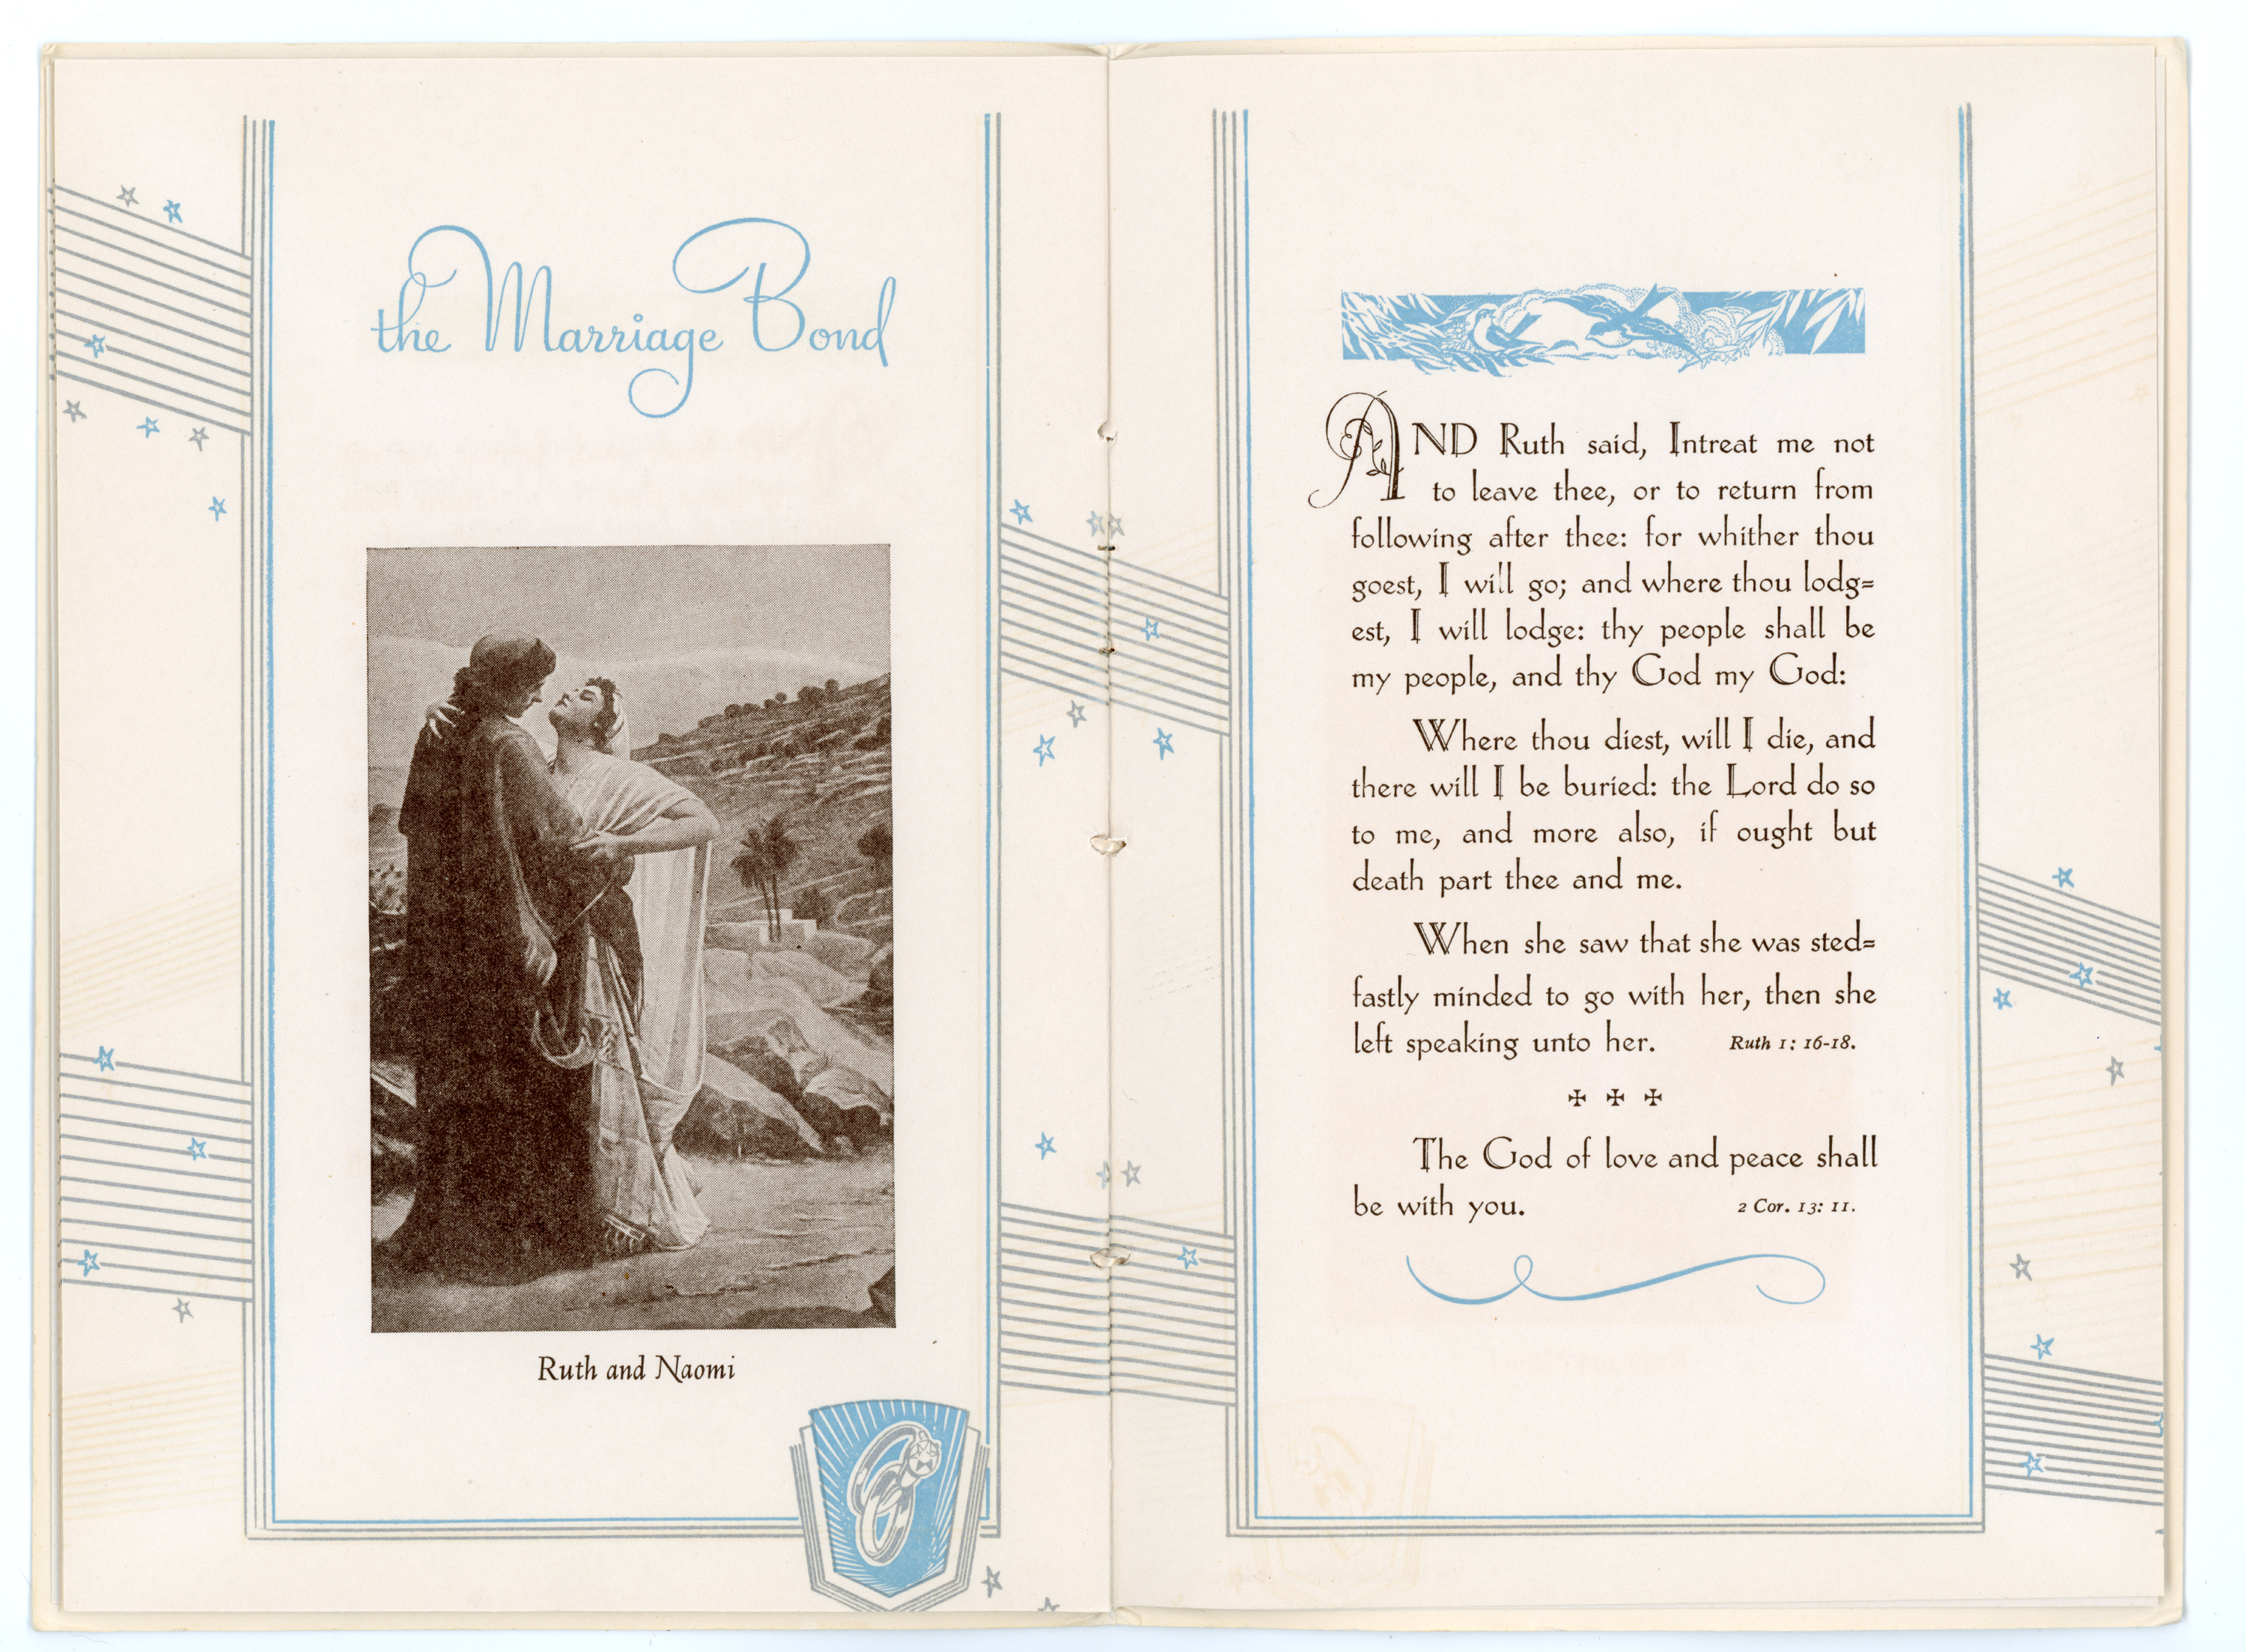 the Marriage Bond
Ruth and Naomi
AND Ruth said, Intreat me not
to leave thee, or to return from
following after thee: for whither thou
goest, I will go; and where thou lodg=
est, I will lodge: thy people shall be
my people, and thy God my God:
Where thou diest, will I die, and
there will I be buried: the Lord do so
to me, and more also, if ought but
death part thee and me.
When she saw that she was sted=
fastly minded to go with her, then she
left speaking unto her. Ruth 1: 16-18.
✠ ✠ ✠
The God of love and peace shall
be with you. 2 Cor. 13: 11.